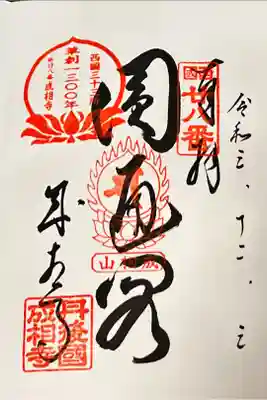 令和三、十二、三
奉拝
西國
廿八番
圓通閣
成相山
西國三十三所
草創一三〇〇年
成相寺
丹後國
成相寺